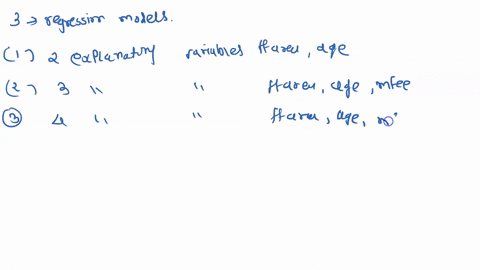 3 → regression models.
(1) 2 explanatory variables ffarea, age
(2) 3 " " ffarea, age, mfee
③ 4 " " ffarea, age, m